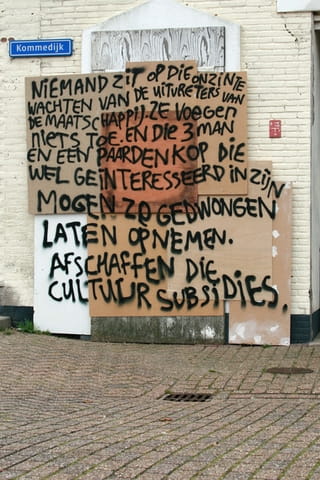 Kommedijk
NIEMAND ZIT OP DIE ONZINIE
WACHTEN VAN DE UITVRETERS VAN
DE MAATSCHAPPIJ. ZE VOEGEN
NIETS TOE. EN DIE 3 MAN
EN EEN PAARDENKOP DIE
WEL GEÏNTERESSEERD IN ZIJN
MOGEN ZO GEDWONGEN
LATEN OPNEMEN.
AFSCHAFFEN DIE
CULTUUR SUBSIDIES.